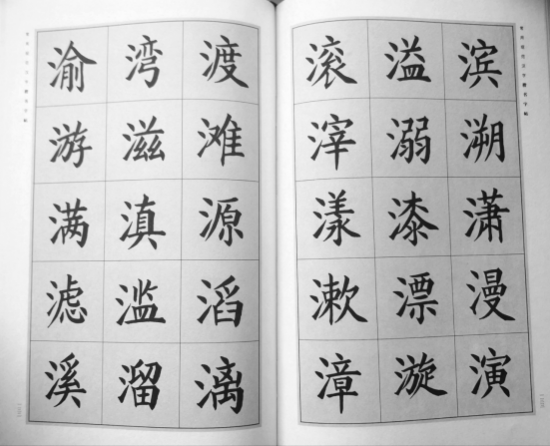 渝 湾 渡
游 滋 滩
满 滇 源
滤 滥 滔
溪 溜 漓
滚 溢 滨
滓 溺 溯
漾 漆 潇
漱 漂 漫
漳 漩 演